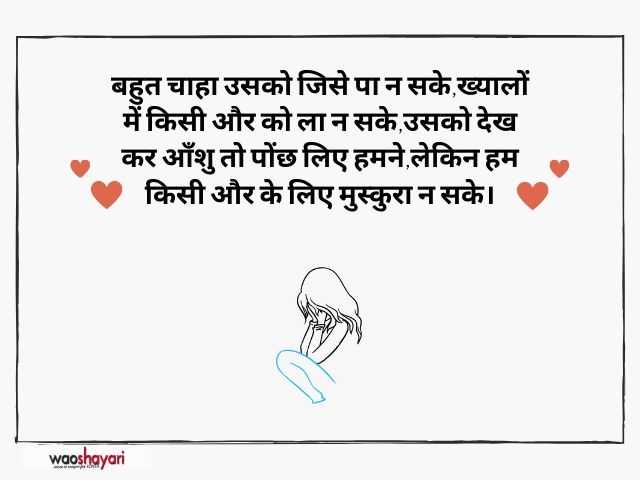 बहुत चाहा उसको जिसे पा न सके,ख्यालों
में किसी और को ला न सके,उसको देख
कर आँशु तो पोंछ लिए हमने,लेकिन हम
किसी और के लिए मुस्कुरा न सके।
waoshayari